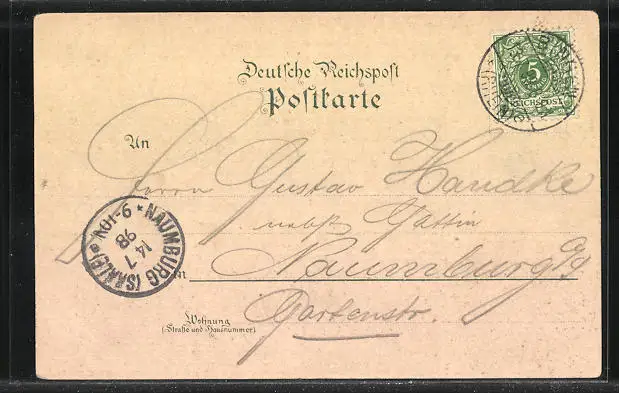 Deutsche Reichspost
Postkarte
5
REICHSPOST
An
Herrn Gustav Handke
nebst Gattin
Naumburg a/S
in
Wohnung
(Straße und Hausnummer)
Gartenstr.
NAUMBURG (SAALE)
14 7
98
9-10V.